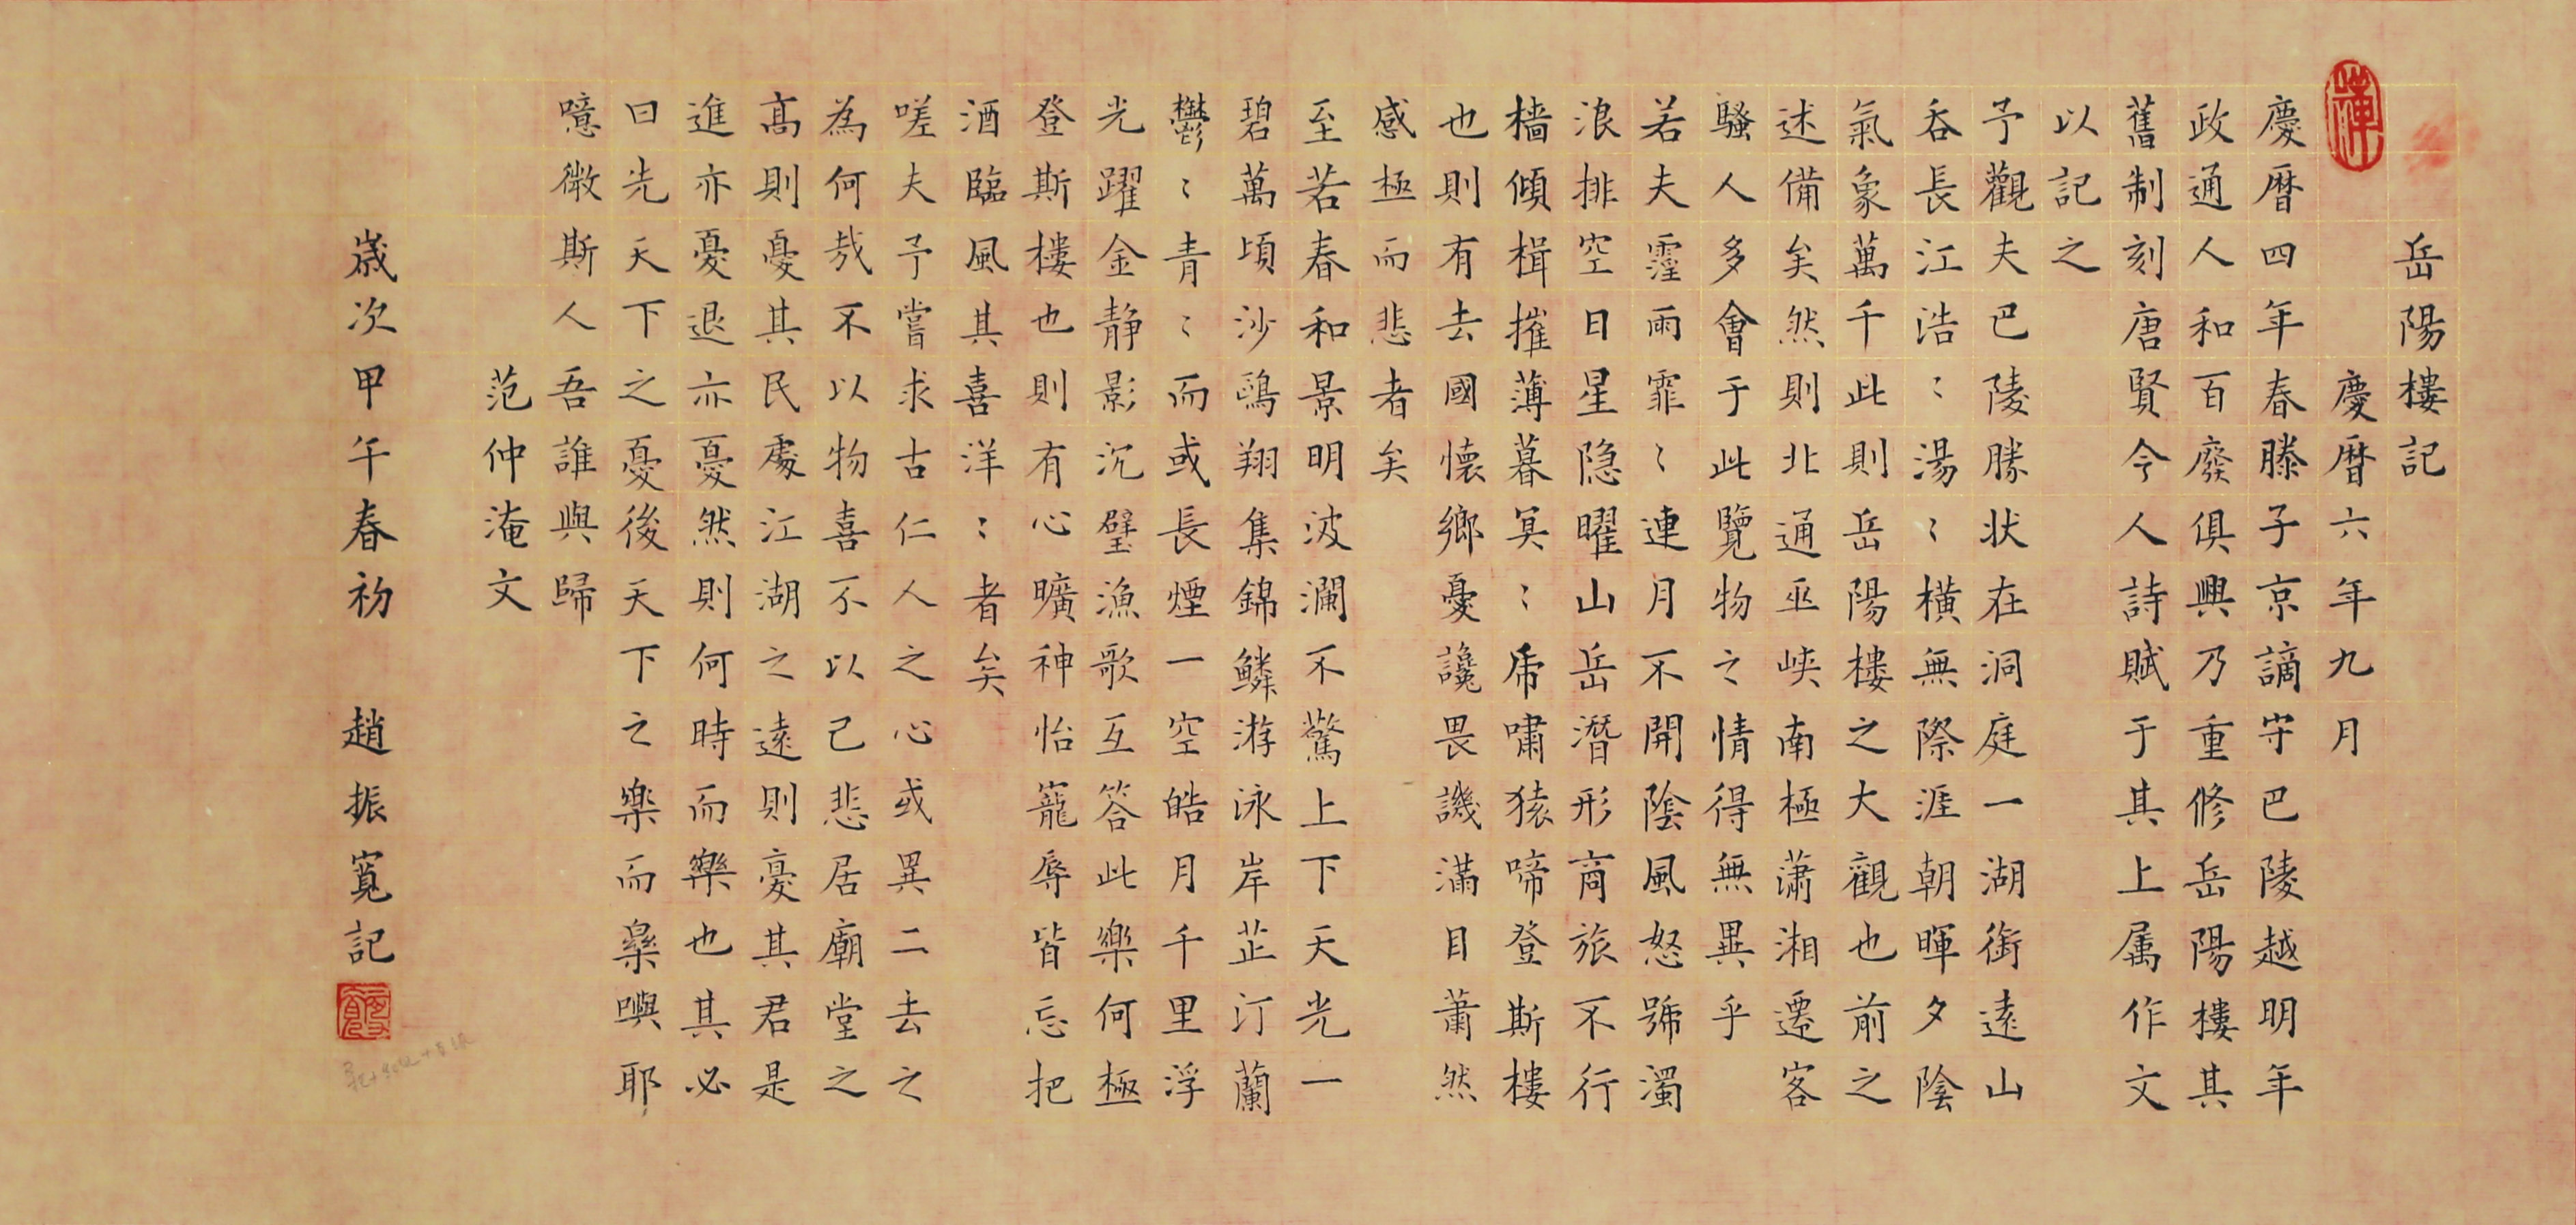 岳陽樓記
慶曆六年九月
慶曆四年春滕子京謫守巴陵越明年
政通人和百廢俱興乃重修岳陽樓其
舊制刻唐賢今人詩賦于其上属作文
以記之
予觀夫巴陵勝状在洞庭一湖銜遠山
吞長江浩〻湯〻橫無際涯朝暉夕陰
氣象萬千此則岳陽樓之大觀也前之
述備矣然則北通巫峽南極瀟湘遷客
騷人多會于此覽物之情得無異乎
若夫霪雨霏〻連月不開陰風怒號濁
浪排空日星隐曜山岳潛形商旅不行
檣傾楫摧薄暮冥〻虎嘯猿啼登斯樓
也則有去國懷鄉憂讒畏譏滿目蕭然
感極而悲者矣
至若春和景明波瀾不驚上下天光一
碧萬頃沙鷗翔集錦鱗游泳岸芷汀蘭
鬱〻青〻而或長煙一空皓月千里浮
光躍金静影沉璧漁歌互答此樂何極
登斯樓也則有心曠神怡寵辱皆忘把
酒臨風其喜洋〻者矣
嗟夫予嘗求古仁人之心或異二去之
為何哉不以物喜不以己悲居廟堂之
髙則憂其民處江湖之遠則憂其君是
進亦憂退亦憂然則何時而樂也其必
曰先天下之憂後天下之樂而樂嶼耶
噫微斯人吾誰與歸
范仲淹文
歲次甲午春初 趙振寬記